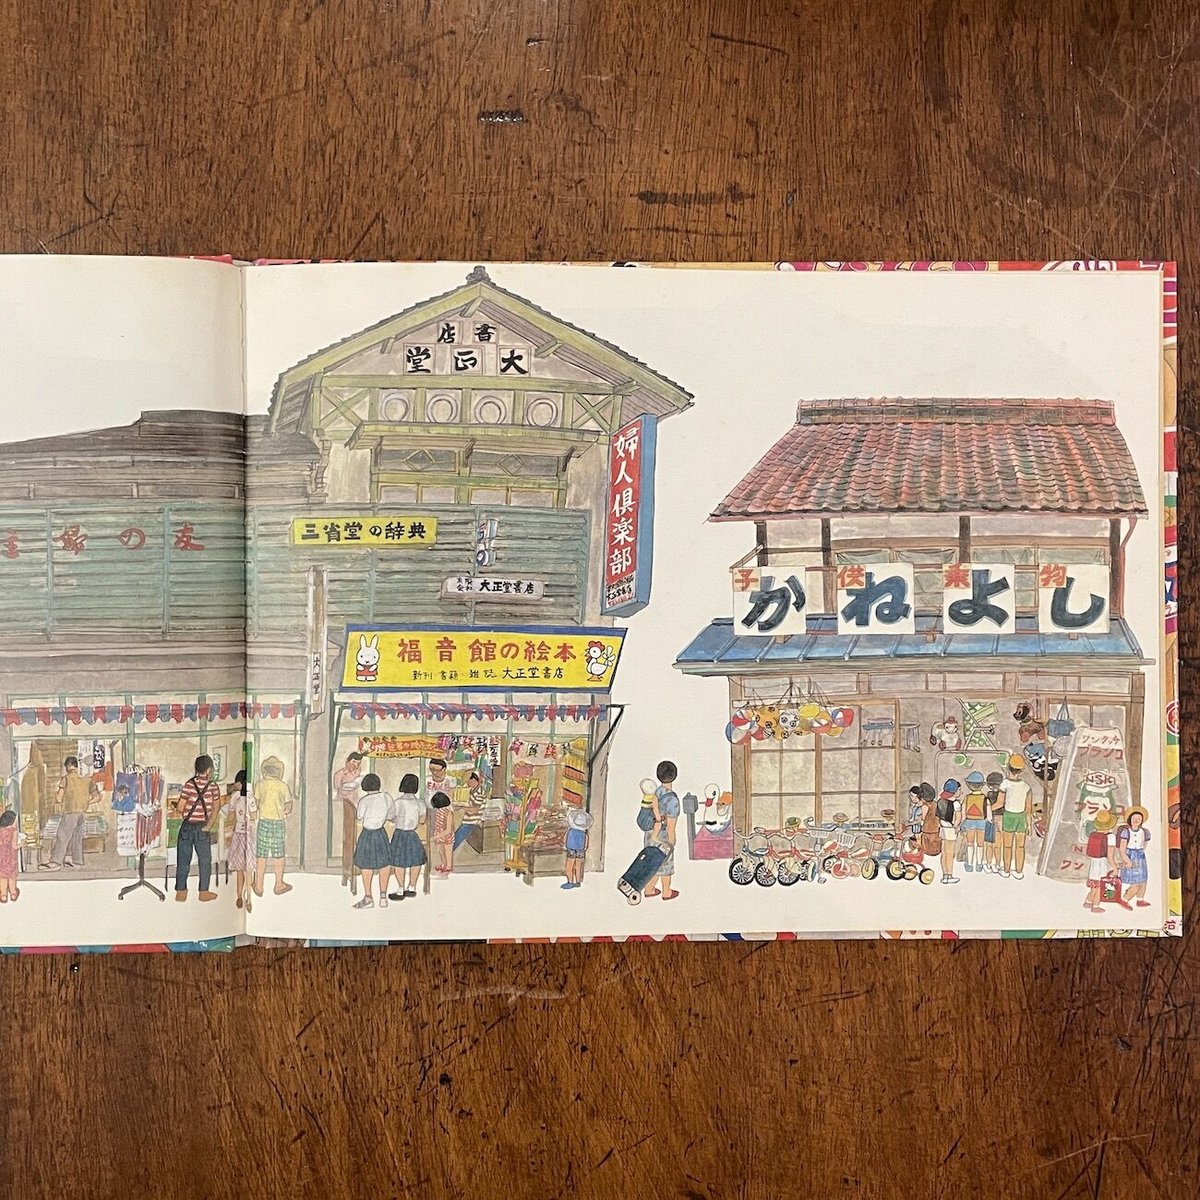 主婦の友
書店
大正堂
婦人倶楽部
三省堂の辞典
有限会社 大正堂書店
大正堂
福音館の絵本
新刊・書籍・雑誌 大正堂書店
子供乗物
かねよし
NSK